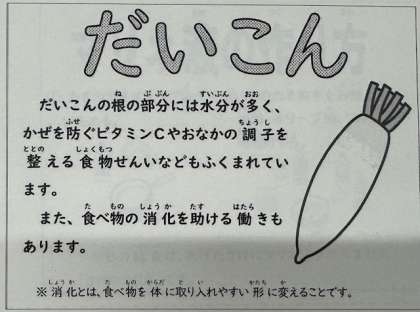 だいこん
だいこんの根の部分には水分が多く、
かぜを防ぐビタミンCやおなかの調子を
整える食物せんいなどもふくまれてい
ます。
また、食べ物の消化を助ける働きも
あります。
※消化とは、食べ物を体に取り入れやすい形に変えることです。